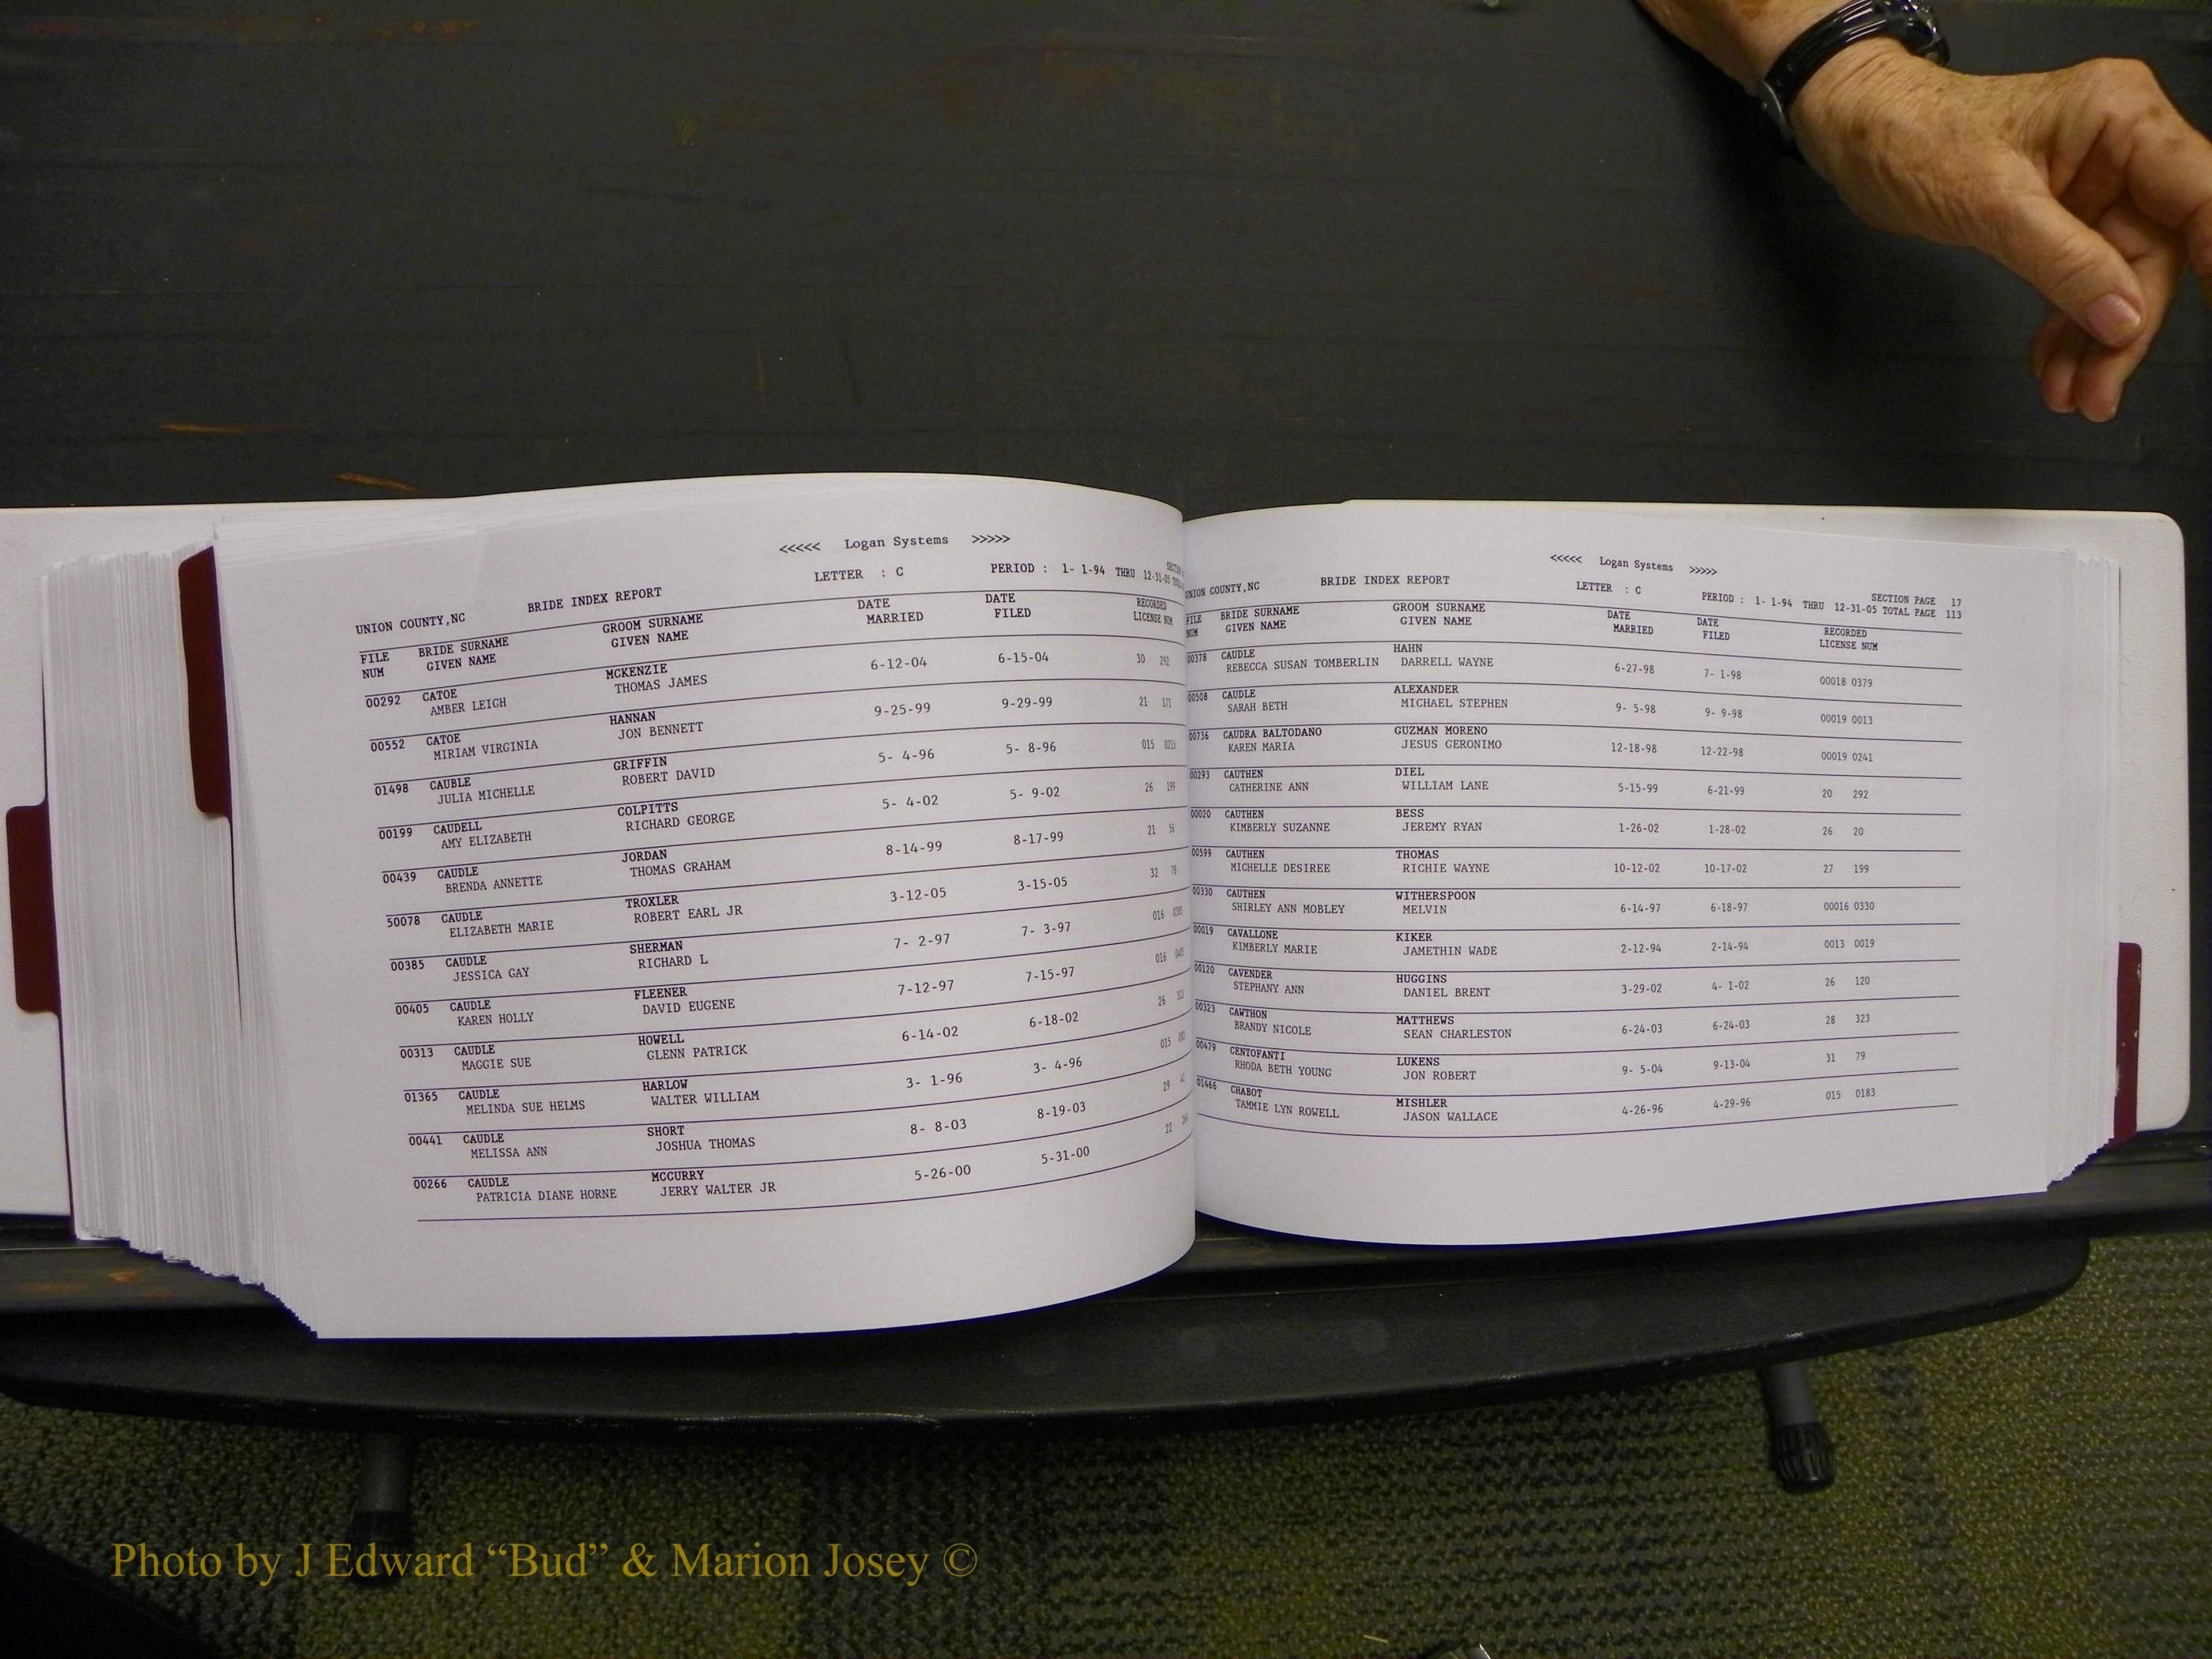 <<<<< Logan Systems >>>>>
LETTER : C PERIOD : 1- 1-94 THRU 12-31-05
UNION COUNTY,NC BRIDE INDEX REPORT
FILE BRIDE SURNAME GROOM SURNAME DATE DATE RECORDED
NUM GIVEN NAME GIVEN NAME MARRIED FILED LICENSE NUM
00292 CATOE MCKENZIE 6-12-04 6-15-04 30 292
AMBER LEIGH THOMAS JAMES
00552 CATOE HANNAN 9-25-99 9-29-99 21 171
MIRIAM VIRGINIA JON BENNETT
01498 CAUBLE GRIFFIN 5- 4-96 5- 8-96 015 0215
JULIA MICHELLE ROBERT DAVID
00199 CAUDELL COLPITTS 5- 4-02 5- 9-02 26 199
AMY ELIZABETH RICHARD GEORGE
00439 CAUDLE JORDAN 8-14-99 8-17-99 21 56
BRENDA ANNETTE THOMAS GRAHAM
50078 CAUDLE TROXLER 3-12-05 3-15-05 32 78
ELIZABETH MARIE ROBERT EARL JR
00385 CAUDLE SHERMAN 7- 2-97 7- 3-97 016
JESSICA GAY RICHARD L
00405 CAUDLE FLEENER 7-12-97 7-15-97 016
KAREN HOLLY DAVID EUGENE
00313 CAUDLE HOWELL 6-14-02 6-18-02 26
MAGGIE SUE GLENN PATRICK
01365 CAUDLE HARLOW 3- 1-96 3- 4-96 015
MELINDA SUE HELMS WALTER WILLIAM
00441 CAUDLE SHORT 8- 8-03 8-19-03 29
MELISSA ANN JOSHUA THOMAS
00266 CAUDLE MCCURRY 5-26-00 5-31-00 22
PATRICIA DIANE HORNE JERRY WALTER JR
<<<<< Logan Systems >>>>>
UNION COUNTY,NC BRIDE INDEX REPORT LETTER : C SECTION PAGE 17
PERIOD : 1- 1-94 THRU 12-31-05 TOTAL PAGE 113
FILE BRIDE SURNAME GROOM SURNAME DATE DATE RECORDED
NUM GIVEN NAME GIVEN NAME MARRIED FILED LICENSE NUM
00378 CAUDLE HAHN 6-27-98 7- 1-98 00018 0379
REBECCA SUSAN TOMBERLIN DARRELL WAYNE
00508 CAUDLE ALEXANDER 9- 5-98 9- 9-98 00019 0013
SARAH BETH MICHAEL STEPHEN
00736 CAUDRA BALTODANO GUZMAN MORENO 12-18-98 12-22-98 00019 0241
KAREN MARIA JESUS GERONIMO
00293 CAUTHEN DIEL 5-15-99 6-21-99 20 292
CATHERINE ANN WILLIAM LANE
00020 CAUTHEN BESS 1-26-02 1-28-02 26 20
KIMBERLY SUZANNE JEREMY RYAN
00599 CAUTHEN THOMAS 10-12-02 10-17-02 27 199
MICHELLE DESIREE RICHIE WAYNE
00330 CAUTHEN WITHERSPOON 6-14-97 6-18-97 00016 0330
SHIRLEY ANN MOBLEY MELVIN
00019 CAVALLONE KIKER 2-12-94 2-14-94 0013 0019
KIMBERLY MARIE JAMETHIN WADE
00120 CAVENDER HUGGINS 3-29-02 4- 1-02 26 120
STEPHANY ANN DANIEL BRENT
00323 CAWTHON MATTHEWS 6-24-03 6-24-03 28 323
BRANDY NICOLE SEAN CHARLESTON
00479 CENTOFANTI LUKENS 9- 5-04 9-13-04 31 79
RHODA BETH YOUNG JON ROBERT
01466 CHABOT MISHLER 4-26-96 4-29-96 015 0183
TAMMIE LYN ROWELL JASON WALLACE
Photo by J Edward “Bud” & Marion Josey ©